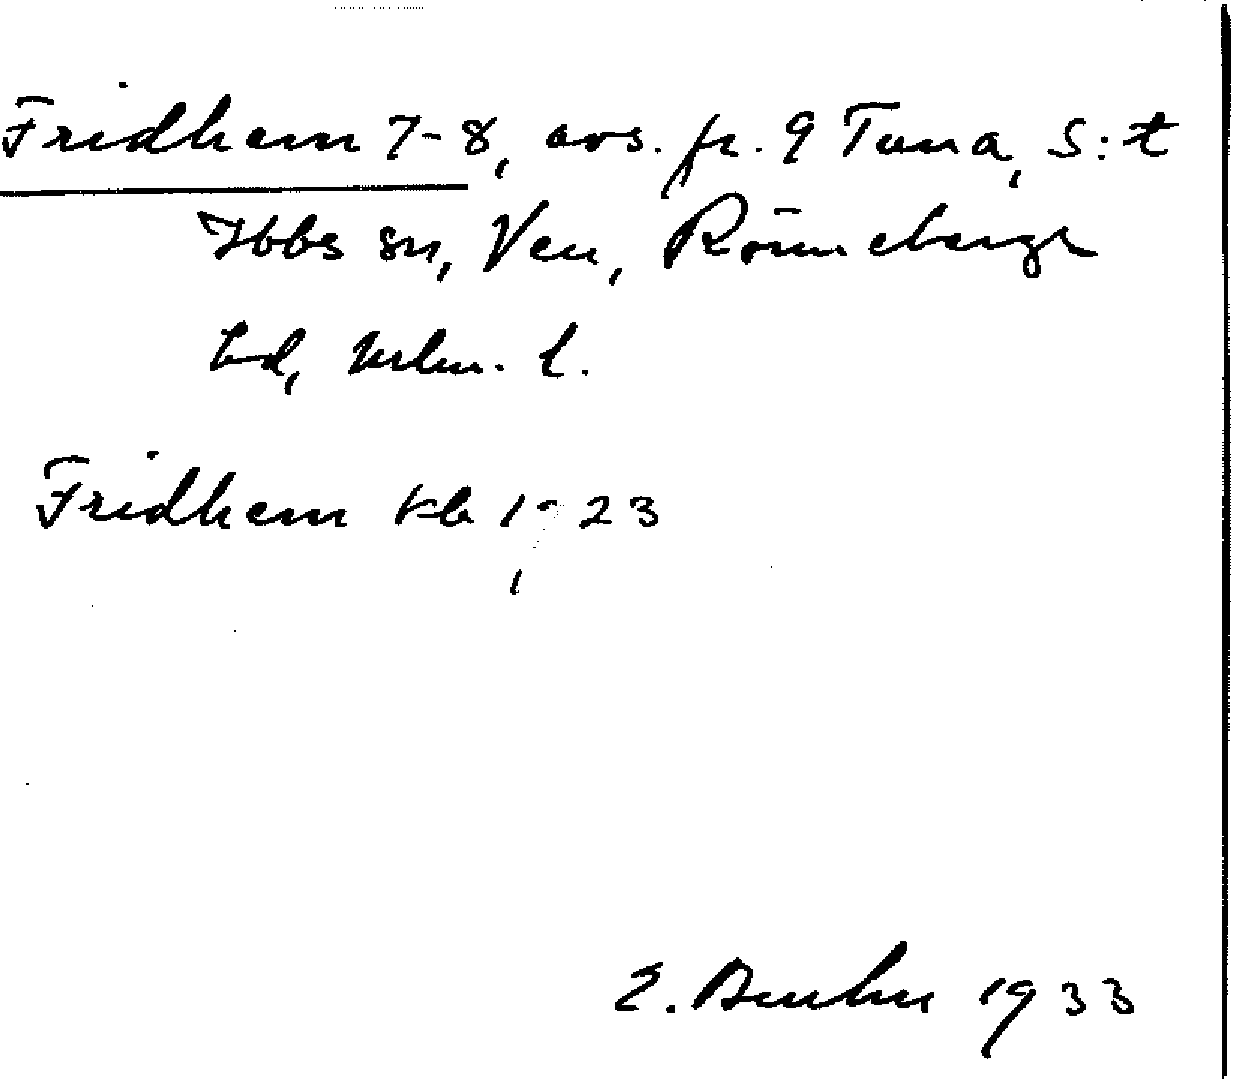 Fridhem 7-8, avs. fr. 9 Tuna, S:t
Ibbs sn, Ven, Rönnebergs
hd, Mlm. l.
Fridhem kb 1923
1933